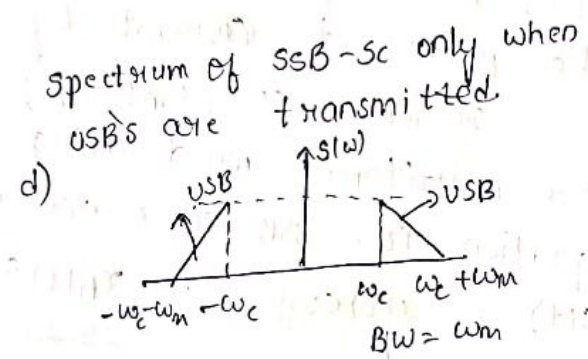 Spectrum of SSB-SC only when
USB's are transmitted
d)
S(ω)
USB
USB
-ωc-ωm -ωc ωc ωc+ωm
BW = ωm